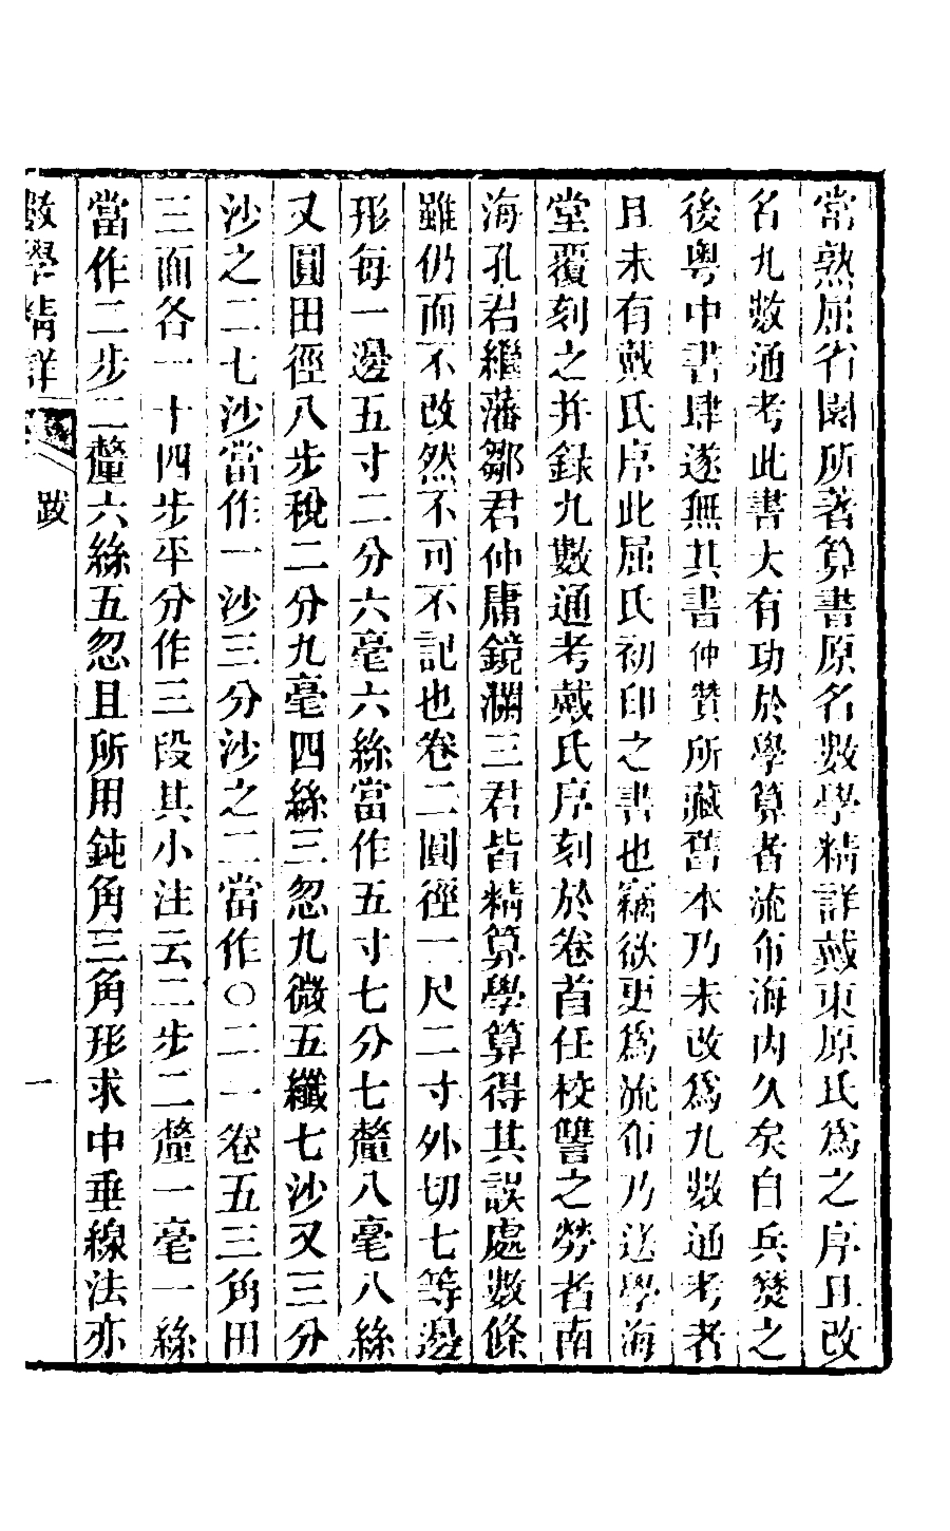 常熟屈省園所著算書原名數學精詳戴東原氏爲之序且改
名九數通考此書大有功於學算者流布海內久矣自兵燹之
後粤中書肆遂無其書仲贊所藏舊本乃未改爲九數通考者
且未有戴氏序此屈氏初印之書也竊欲更爲流布乃送學海
堂覆刻之并錄九數通考戴氏序刻於卷首任校讐之勞者南
海孔君繼藩鄒君仲庸鏡瀾三君皆精算學算得其誤處數條
雖仍而不改然不可不記也卷二圓徑一尺二寸外切七等邊
形每一邊五寸二分六毫六絲當作五寸七分七釐八毫八絲
又圓田徑八步稅二分九毫四絲三忽九微五纖七沙又三分
沙之二七沙當作一沙三分沙之二當作〇二一卷五三角田
三面各一十四步平分作三段其小注云二步二釐一毫一絲
當作二步二釐六絲五忽且所用鈍角三角形求中垂線法亦
數學精詳
跋
一